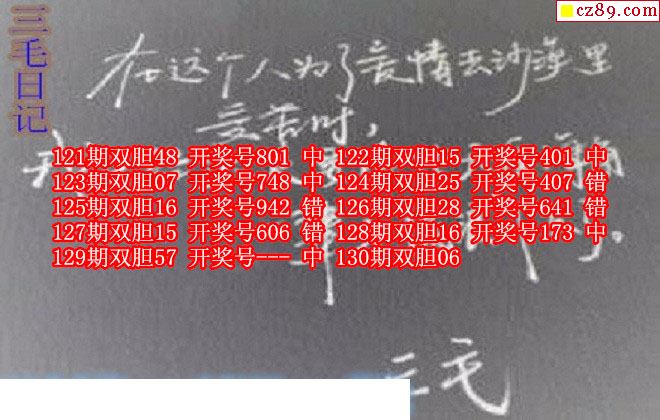 cz89.com
三毛日记
在这个人为了爱情去沙漠里
受苦时,
121期双胆48 开奖号801 中 122期双胆15 开奖号401 中
123期双胆07 开奖号748 中 124期双胆25 开奖号407 错
125期双胆16 开奖号942 错 126期双胆28 开奖号641 错
127期双胆15 开奖号606 错 128期双胆16 开奖号173 中
129期双胆57 开奖号--- 中 130期双胆06
三毛